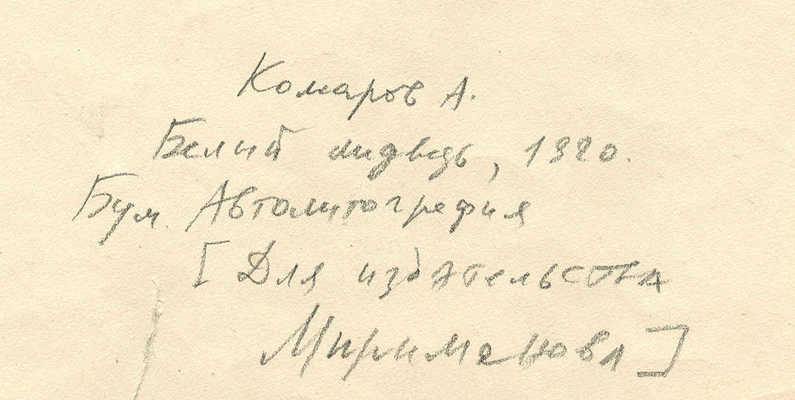 Комаров А.
Белый медведь, 1920.
Бум. Автолитография
[Для издательства
Мириманова]